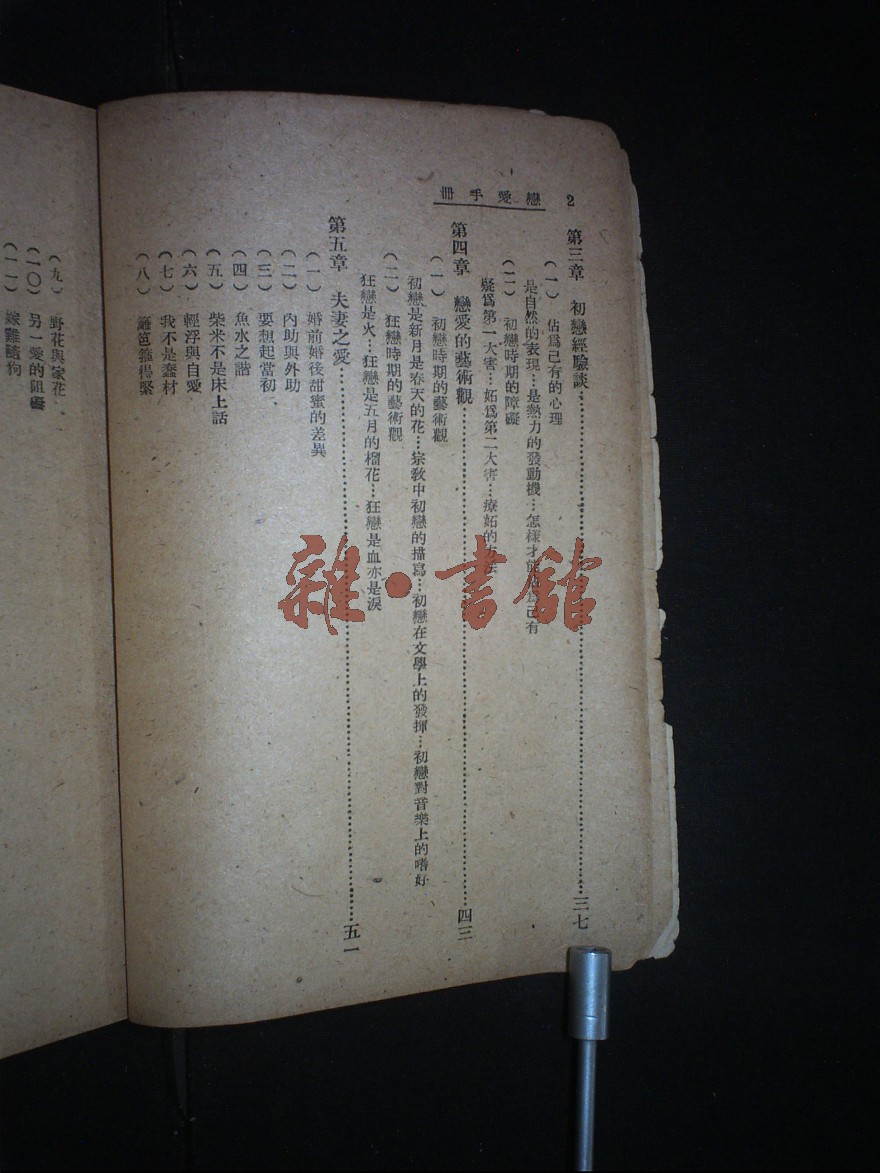 2 戀愛手冊
第三章 初戀經驗談……三七
(一) 佔爲己有的心理
是自然的表現…是熱力的發動機…怎樣才能佔爲己有
(二) 初戀時期的障礙
疑爲第一大害…妬爲第二大害…療妬的方法
第四章 戀愛的藝術觀……四三
(一) 初戀時期的藝術觀
初戀是新月是春天的花…宗敎中初戀的描寫…初戀在文學上的發揮…初戀對音樂上的嗜好
(二) 狂戀時期的藝術觀
狂戀是火…狂戀是五月的榴花…狂戀是血亦是淚
第五章 夫妻之愛……五一
(一) 婚前婚後甜蜜的差異
(二) 內助與外助
(三) 要想起當初
(四) 魚水之諧
(五) 柴米不是床上話
(六) 輕浮與自愛
(七) 我不是蠢材
(八) 籬笆箍得緊
(九) 野花與家花
(一〇) 另一愛的阻礙
(一一) 嫁雞隨狗
雜·書館